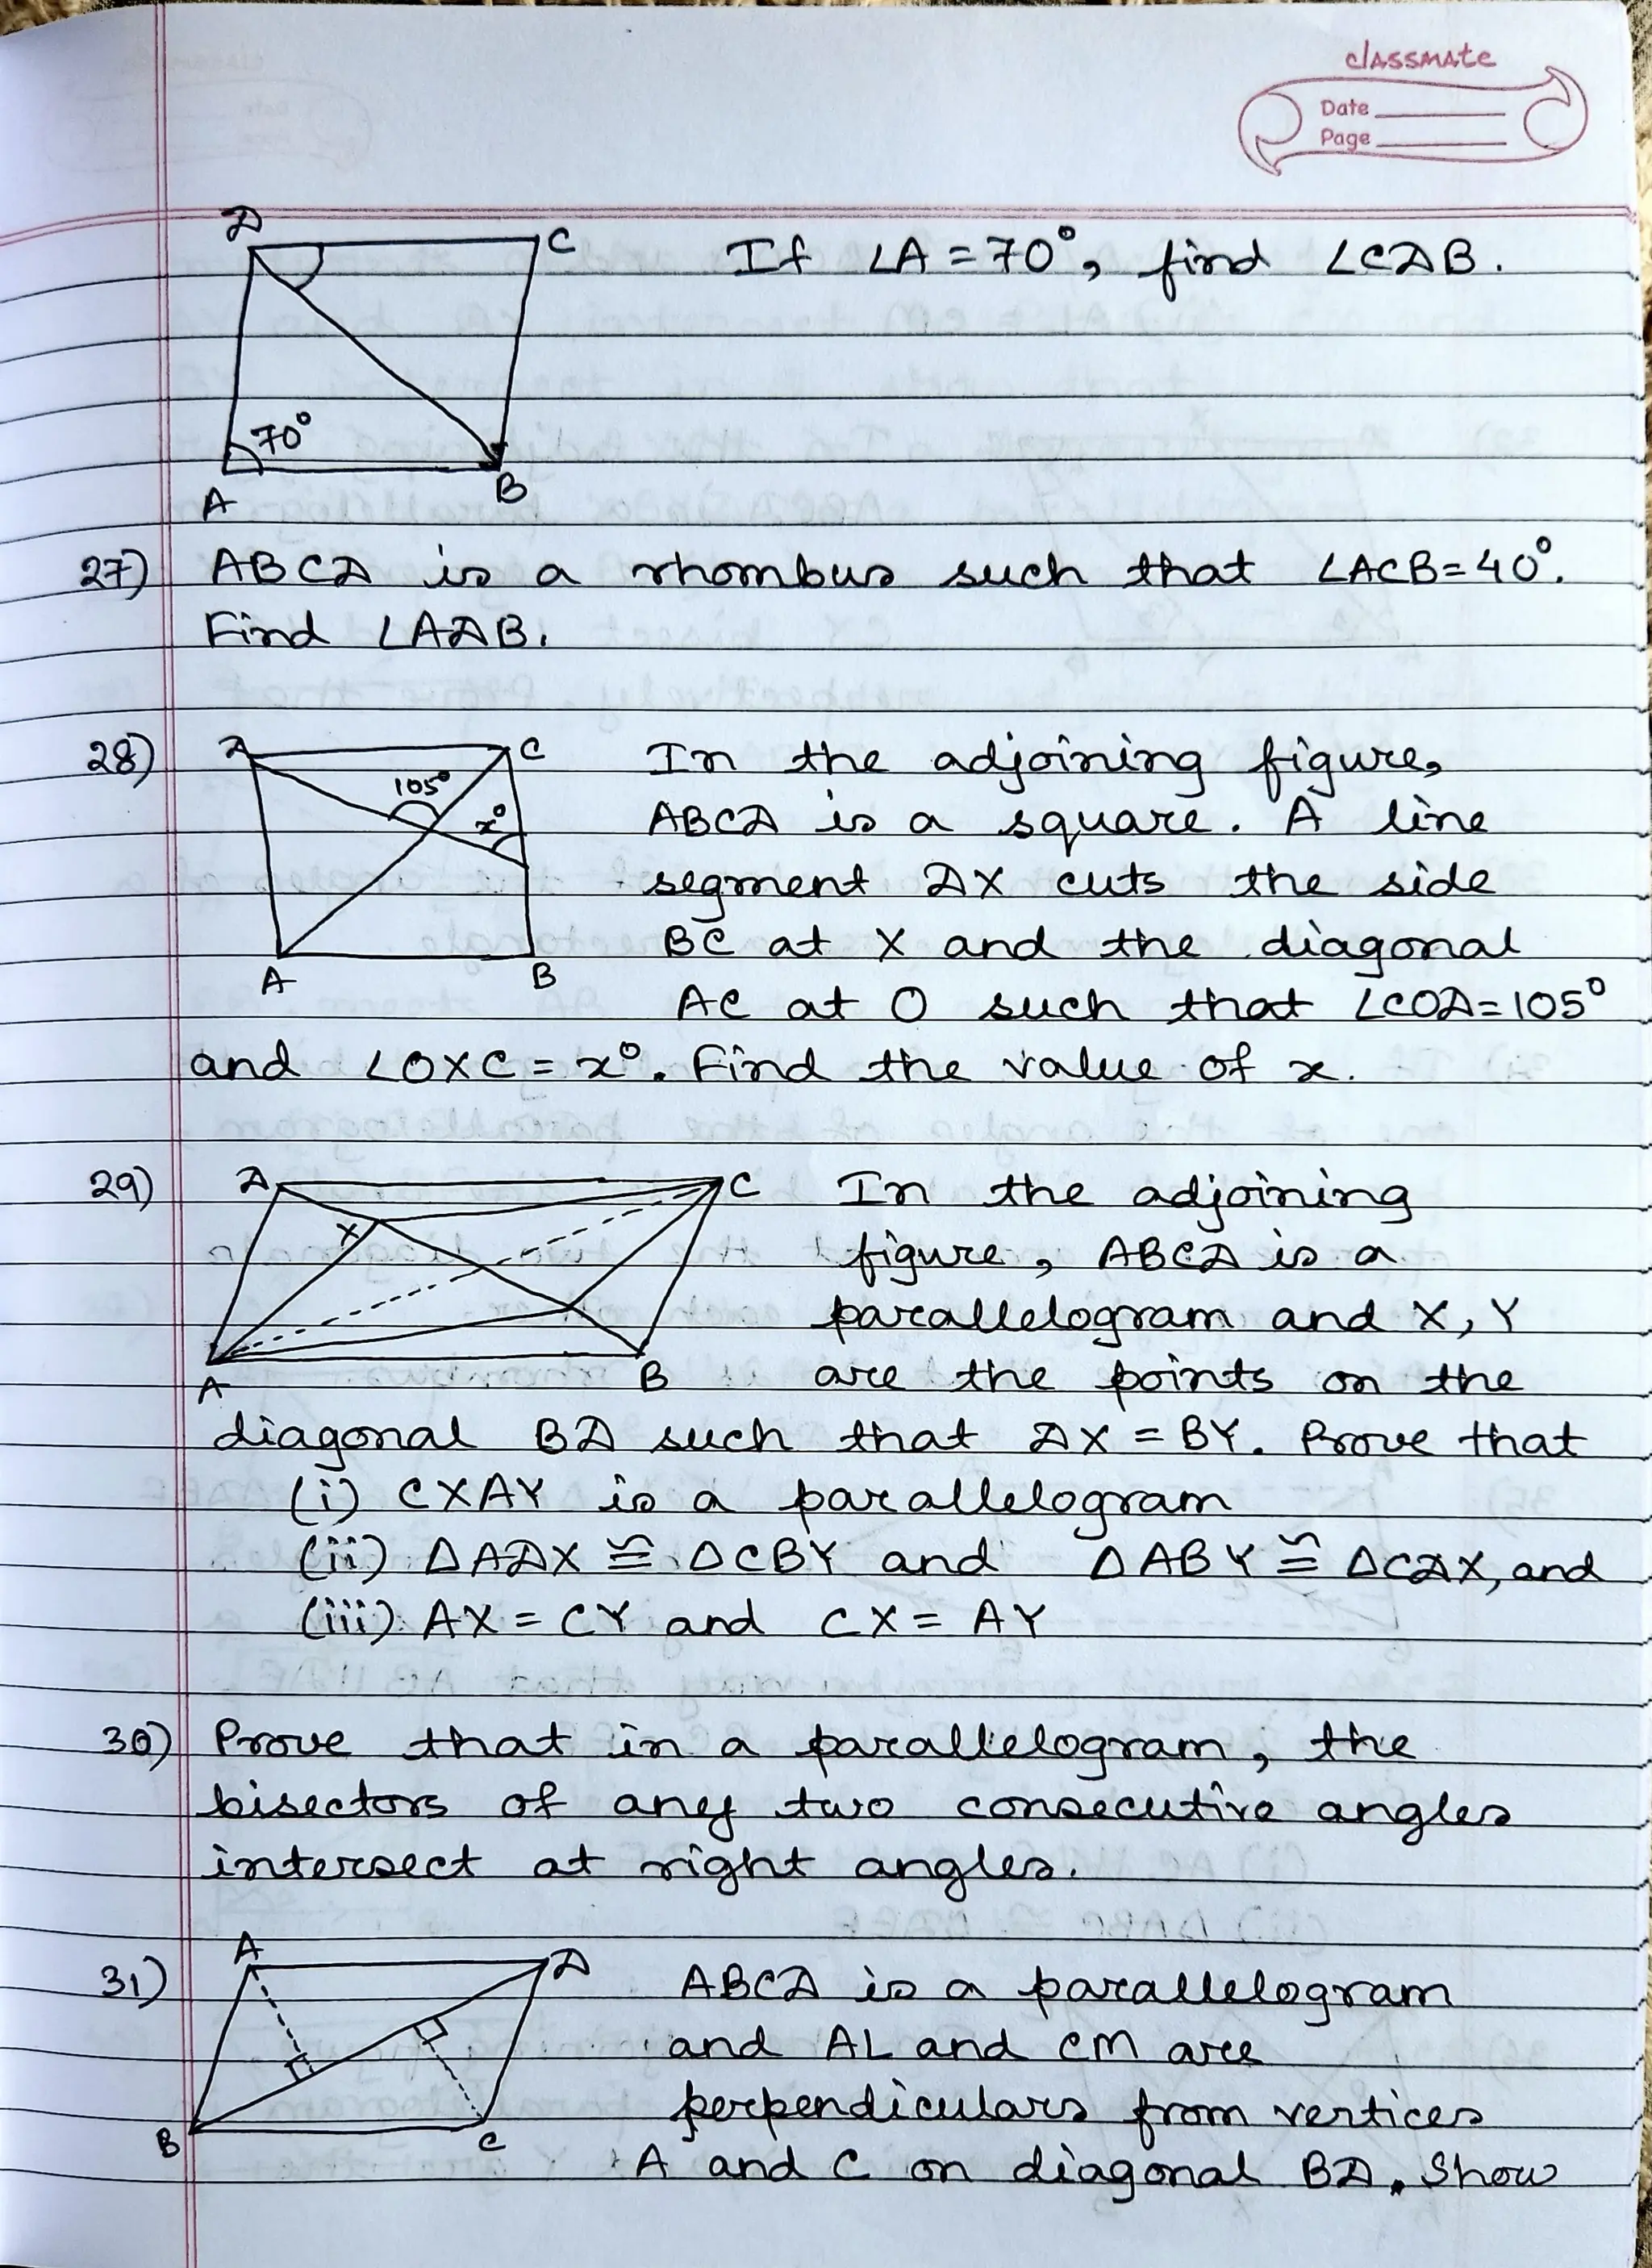 classmate
Date
Page
D
C
If ∠A = 70°, find ∠CDB.
70°
A
B
27) ABCD is a rhombus such that ∠ACB = 40°.
Find ∠ADB.
28)
D
C
105°
x°
A
B
In the adjoining figure,
ABCD is a square. A line
segment DX cuts the side
BC at X and the diagonal
AC at O such that ∠COD = 105°
and ∠OXC = x°. Find the value of x.
29)
D
C
X
A
B
In the adjoining
figure, ABCD is a
parallelogram and X, Y
are the points on the
diagonal BD such that DX = BY. Prove that
(i) CXAY is a parallelogram
(ii) ΔADX ≅ ΔCBY and ΔABY ≅ ΔCDX, and
(iii) AX = CY and CX = AY
30) Prove that in a parallelogram, the
bisectors of any two consecutive angles
intersect at right angles.
31)
A
D
B
C
ABCD is a parallelogram
and AL and CM are
perpendiculars from vertices
A and C on diagonal BD. Show